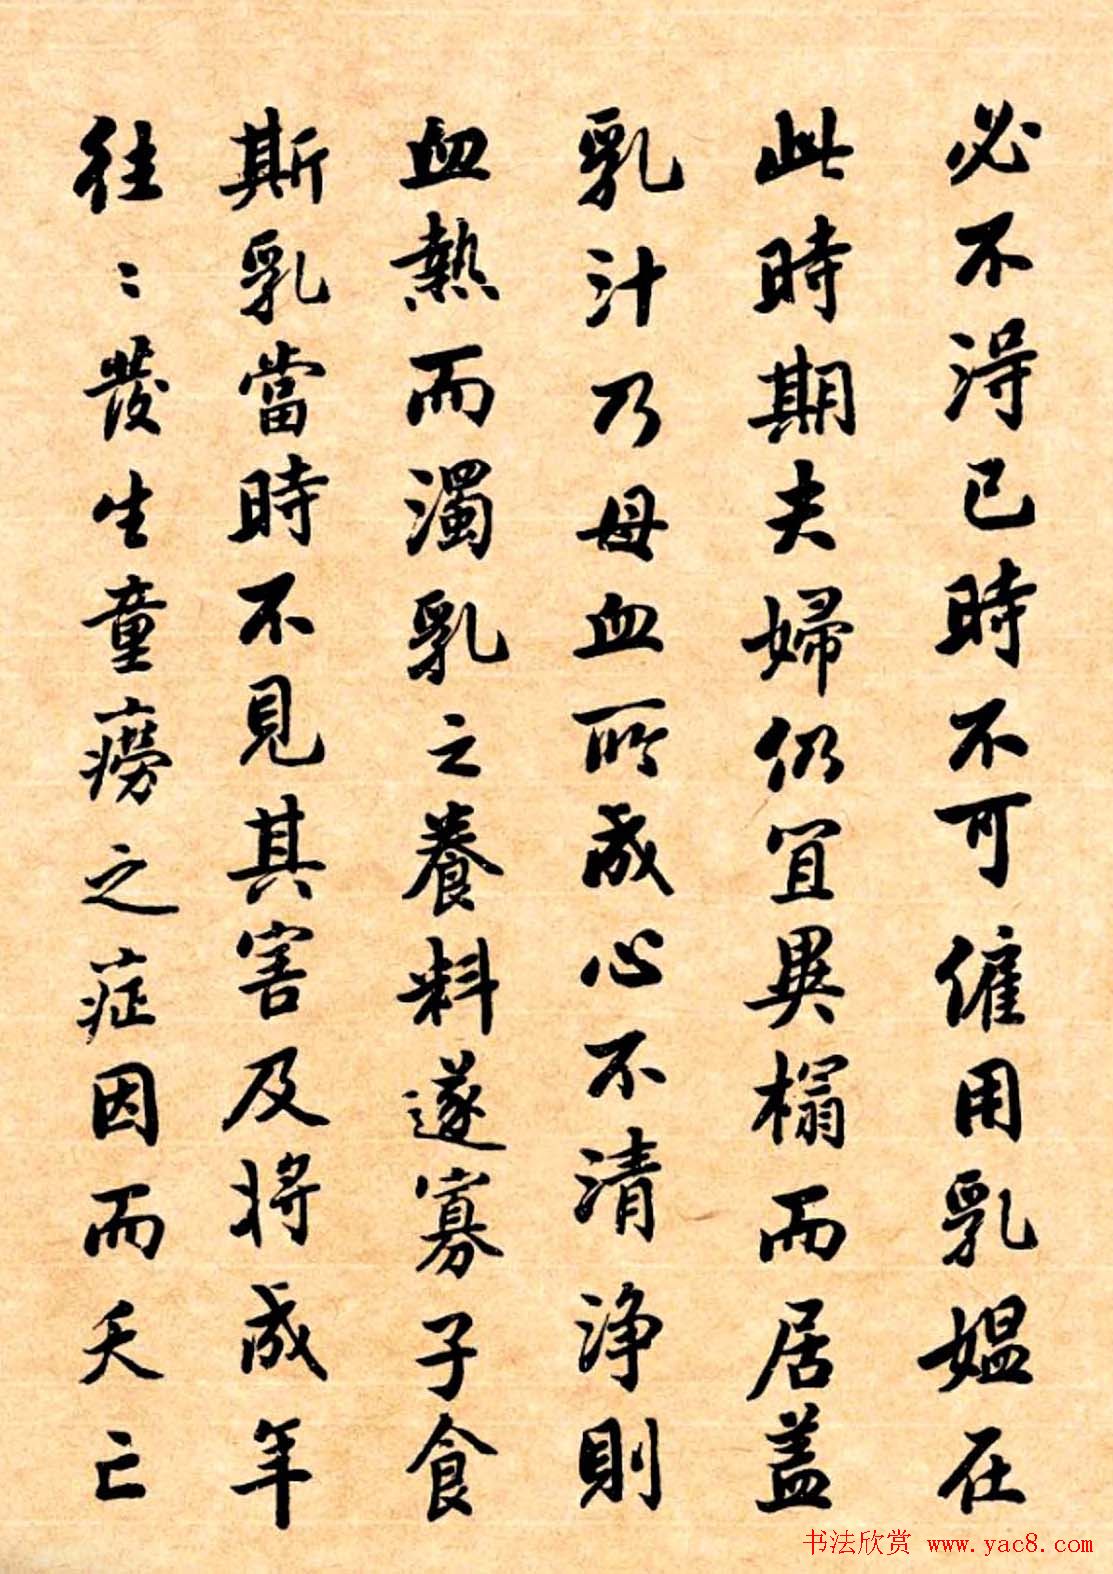 必不得已時不可僱用乳媪在
此時期夫婦仍宜異榻而居蓋
乳汁乃母血所成心不清淨則
血熱而濁乳之養料遂寡子食
斯乳當時不見其害及将成年
往〻發生童癆之症因而夭亡
书法欣赏 www.yac8.com